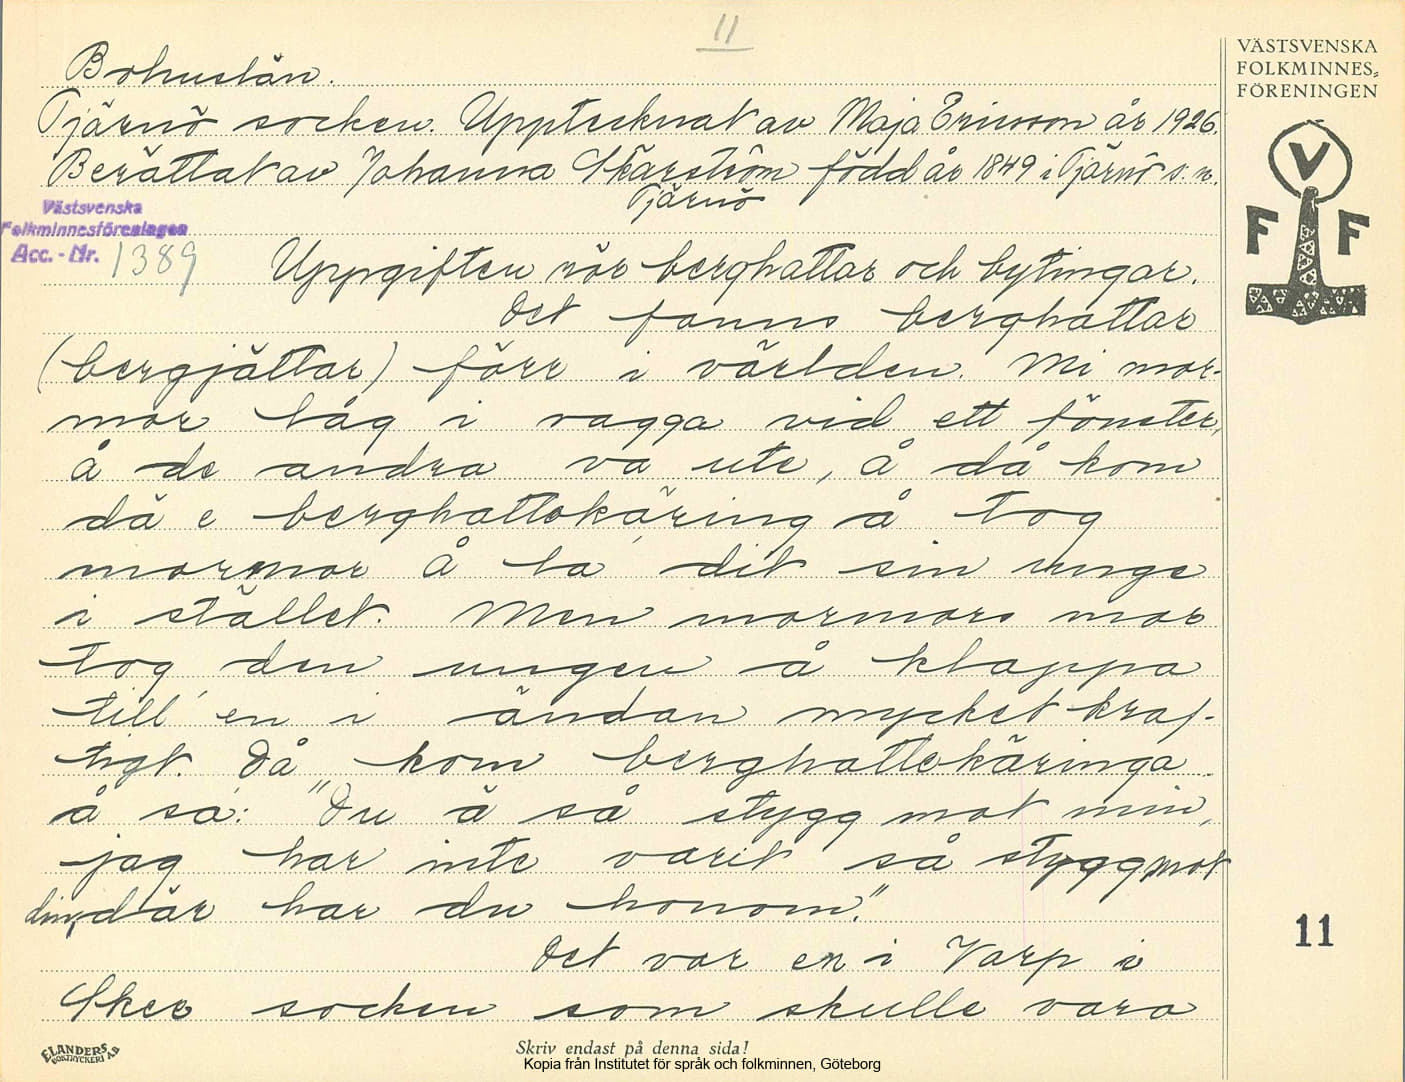 11
VÄSTSVENSKA
FOLKMINNES-
FÖRENINGEN
V
F F
Bohuslän.
Tjärnö socken. Upptecknat av Maja Ericson år 1926.
Berättat av Johanna Skarström född år 1849 i Tjärnö s:n.
Tjärnö
Västsvenska
Folkminnesföreningen
Acc. - Nr. 1389
Uppgiften rör berghattar och bytingar.
Det fanns berghattar
(bergjättar) förr i världen. Mi mor-
mor låg i vagga vid ett fönster,
å de andra va ute, å då kom
dä e berghattekäring å tog
mormor å la' dit sin unge
i stället. Men mormors mor
tog den ungen å klappa
till 'en i ändan mycket kraf-
tigt. Då kom berghattekäringa
å sa: "Du ä så stygg mot min,
jag har inte varit så stygg mot
din, där har du honom."
Det var en i Varp i
Skee socken som skulle vara
11
ELANDERS
BOKTRYCKERI A.B
Skriv endast på denna sida!
Kopia från Institutet för språk och folkminnen, Göteborg